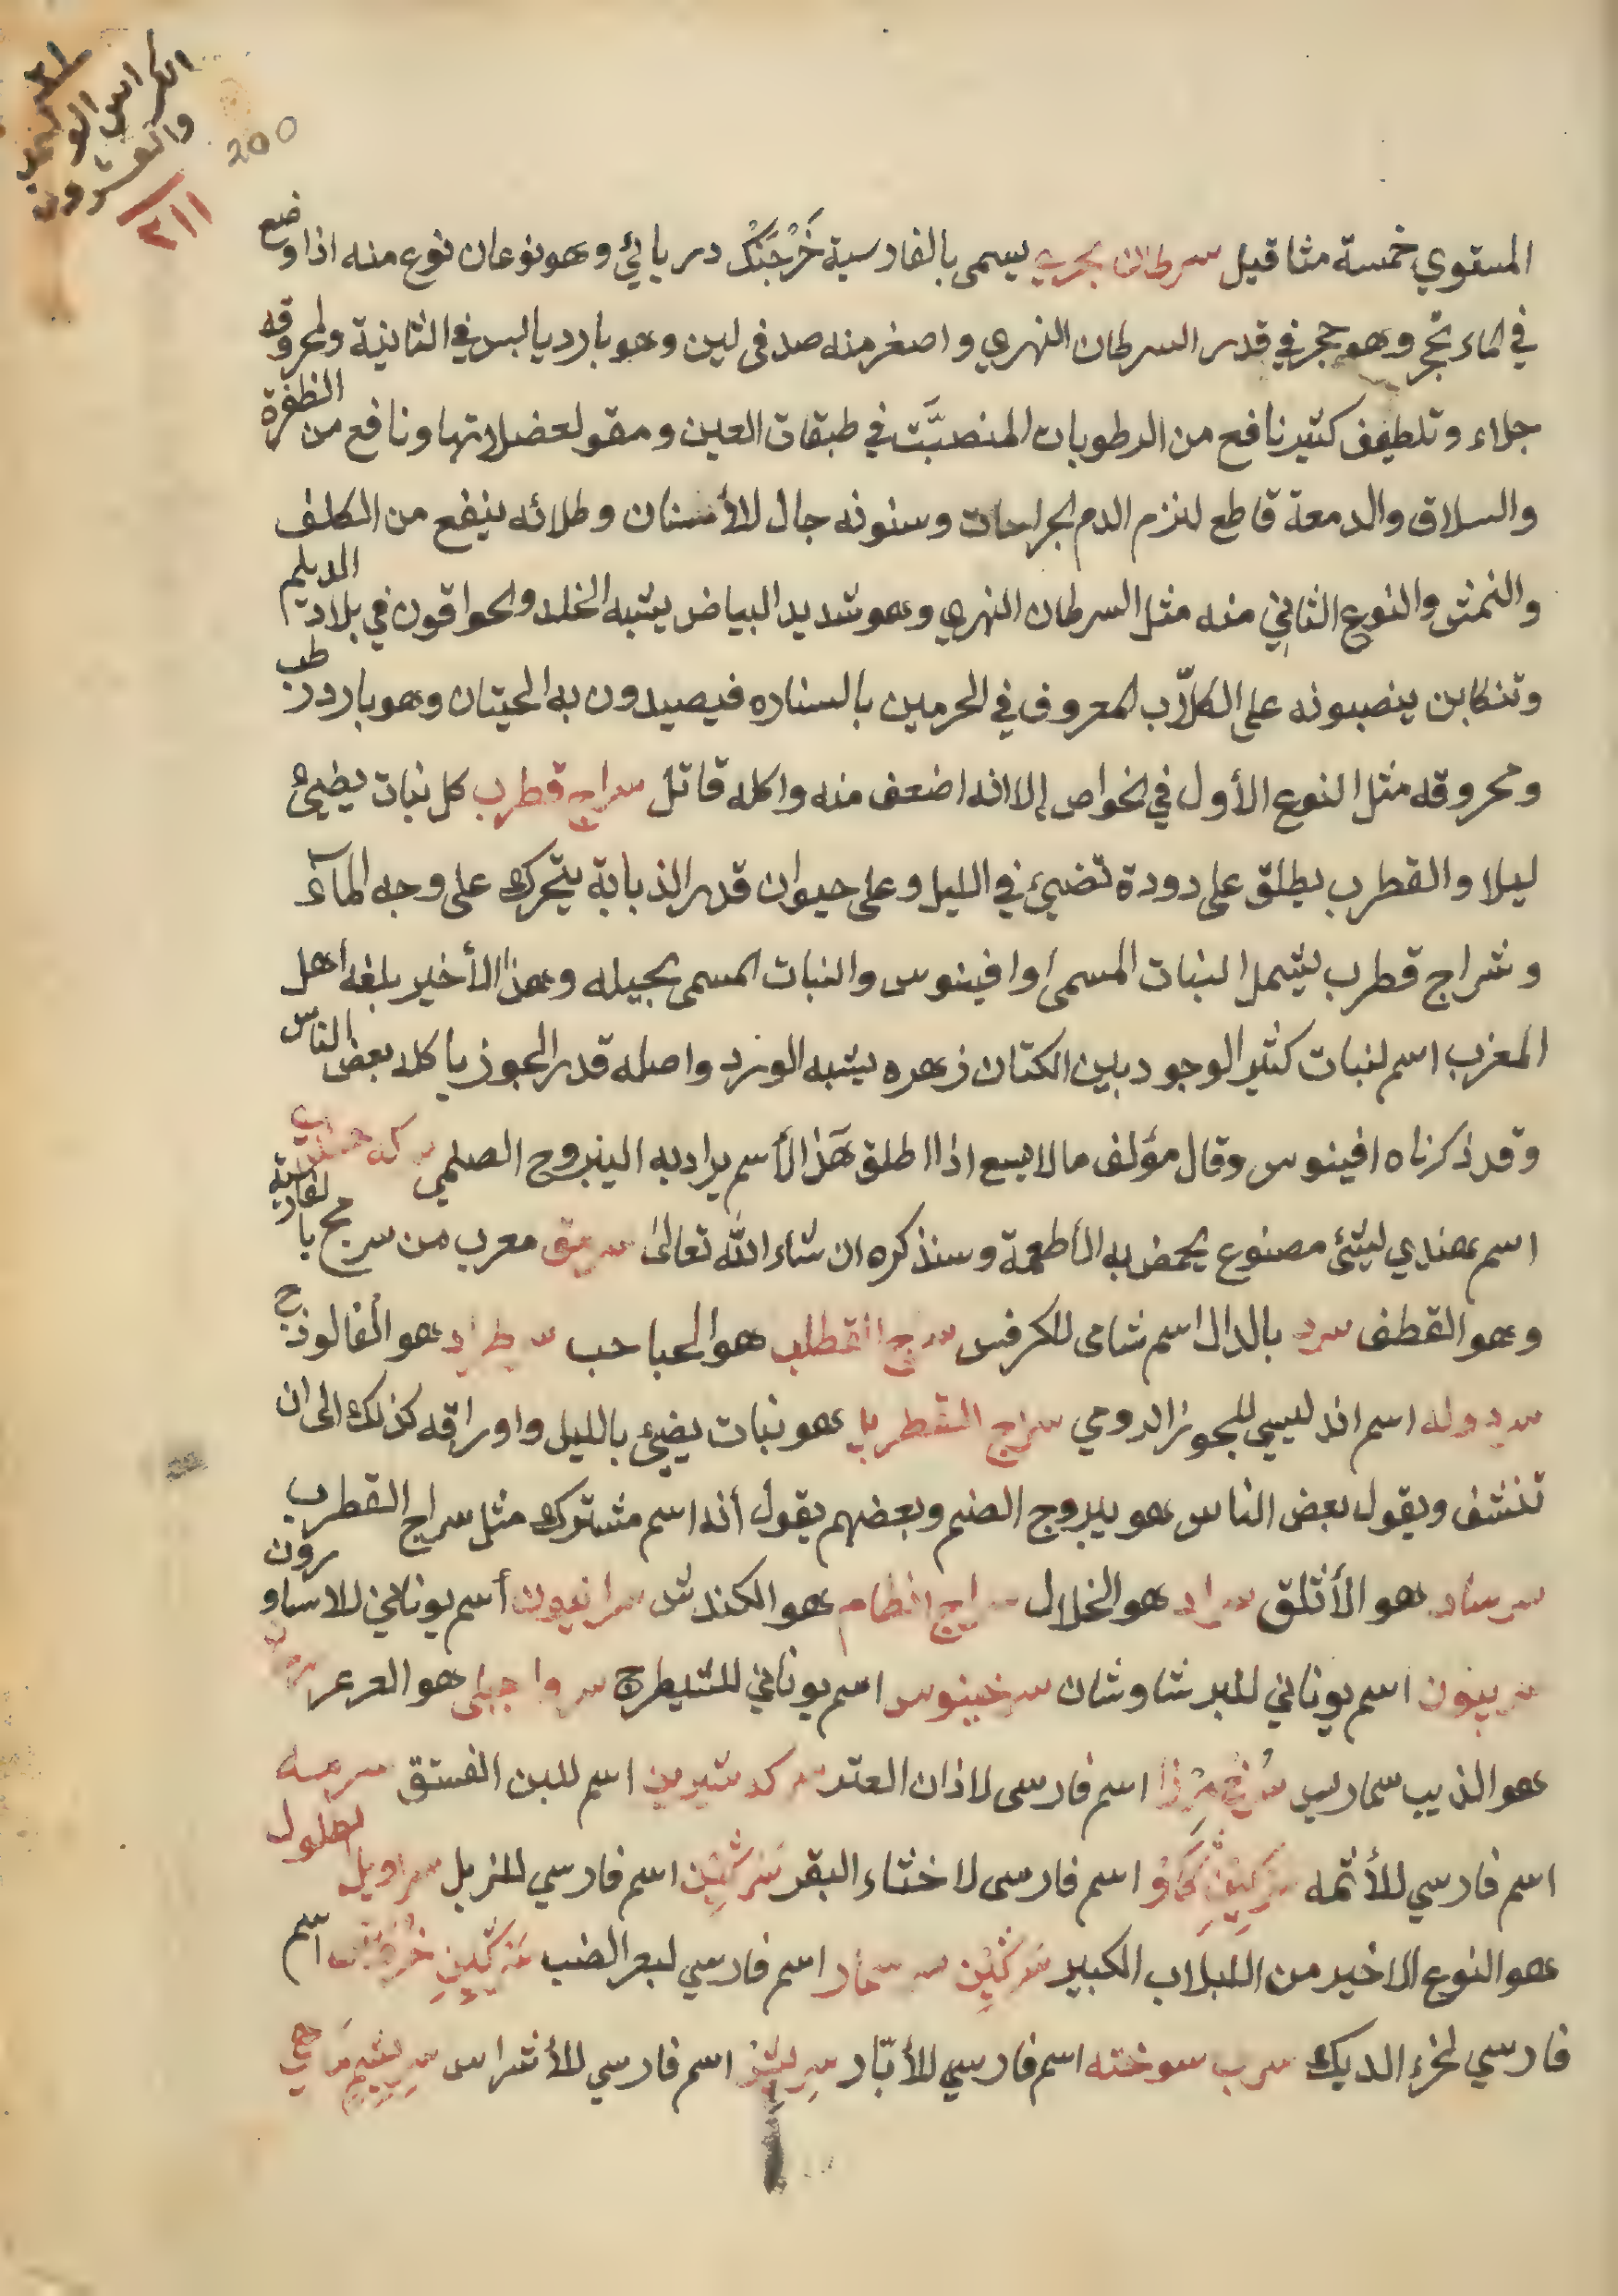 الكراس الو
والعشرون
٢١١
200
المستوي خمسة مثاقيل سرطان بحري يسمى بالفارسية خَرْجَنْك دريائي وهو نوعان نوع منه اذا وضع
في الماء تحجر وهو حجر في قدر السرطان النهري واصغر منه صدفى لين وهو بارد يابس في الثانية ولمحروقه
جلاء وتلطيف كثير نافع من الرطوبات المنصبَّت في طبقات العين ومقو لعضلاتها ونافع من الظفرة
والسلاق والدمعة قاطع لنزم الدم الجراحات وسنونه جال للأسنان وطلائه ينفع من الكلف
والنمش والنوع الثاني منه مثل السرطان النهري وهو شديد البياض يشبه الخلد والحواقون في بلاد الديلم
وتنكابن ينصبونه على الكلّاب المعروف في الحرمين بالسناره فيصيدون به الحيتان وهو بارد رطب
ومحروقه مثل النوع الأول في الخواص إلا انه اضعف منه واكله قاتل سراج قطرب كل نبات يضيئ
ليلا والقطرب يطلق على دودة تضيئ في الليل وعلى حيوان قدر الذبابة يتحرك على وجه المآء
وشراج قطرب يشمل النبات المسمى اوافينوس والنبات المسمى بجيله وهذا الأخير بلغه اهل
المغرب اسم لنبات كثير الوجود بين الكتان زهره يشبه الورد واصله قدر الجوز ياكله بعض الناس
وقد ذكرناه افينوس وقال مؤلف مالا يسع اذا اطلق هَذا الأسم يراد به اليبروج الصلمي سركه
اسم هندي لشئ مصنوع يحمض به الأطعمة وسنذكره ان شاء الله تعالى سرمق معرب من سرمج بالفارسية
وهو القطف سرد بالدال اسم شامى للكرفس سرج القطلب هو الحباحب سرطراد هو ألفالوذج
سردوله اسم اندليسي للجوز الرومي سراج القطربل هو نبات يضيئ بالليل واوراقه كذلك الى ان
تنشف ويقول بعض الناس هو يبروج الصنم وبعضهم يقول أنه اسم مشترك مثل سراج القطرب
سرساد هو الأثلق سراد هو الخلال سراج الظلام هو الكندش سرافيون أسم يوناني للاسارون
سربيون اسم يوناني للبرشاوشان سرخينوس اسم يوناني للشيطرج سرواجبلى هو العرعر
هو الذيب سماريس سُرْخ مرزا اسم فارسى لاذان العتر سركه شيرين اسم للبن الفستق سرمه
اسم فارسي للأثمه سَركِيْن كَاوْ اسم فارسى لاخثاء البقر سَرْكِيْن اسم فارسي للزبل سراويل بهلول
هو النوع الاخير من اللبلاب الكبير سَركِيْن سوسمار اسم فارسي لبعر الضب سَركِيْنِ خُرُوس اسم
فارسي لخرء الديك سرب سوخته اسم فارسي للأبّار سِريش اسم فارسي للأشراس سِرِيشِم مَاهِي